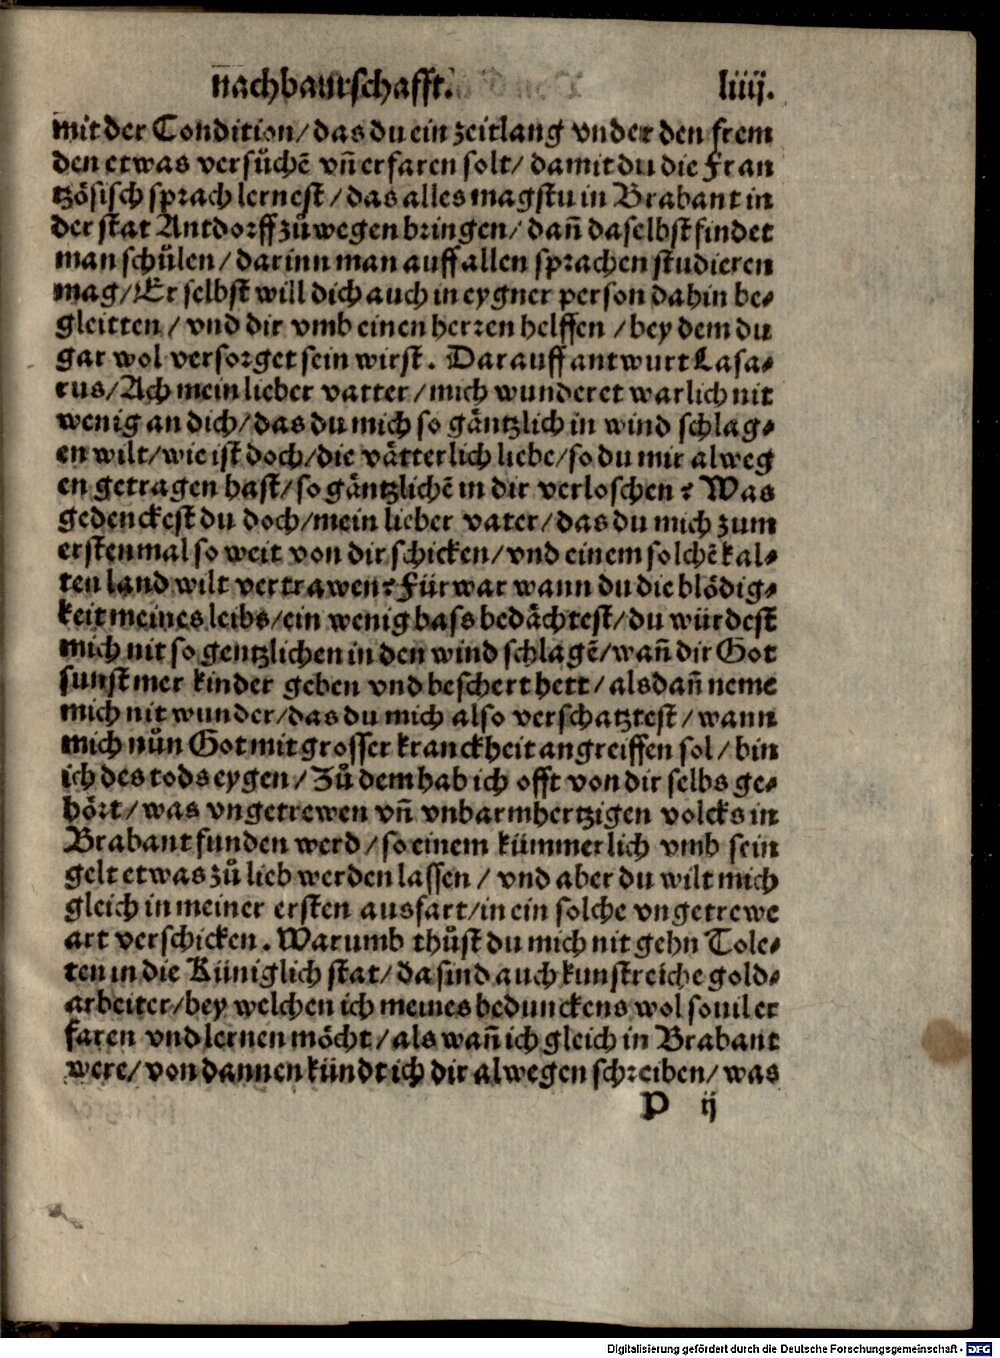 nachbaurschafft. liiij.
mit der Condition/ das du ein zeitlang vnder den frem
den etwas versůchē vñ erfaren solt/ damit du die Fran
tzösisch sprach lernest/ das alles magstu in Brabant in
der stat Antdorff zů wegen bringen/ dañ daselbst findet
man schůlen/ darinn man auff allen sprachen studieren
mag/ Er selbst will dich auch in eygner person dahin be⸗
gleitten/ vnd dir vmb einen herren helffen/ bey dem du
gar wol versorget sein wirst. Darauff antwurt Lasa⸗
rus/ Ach mein lieber vatter/ mich wunderet warlich nit
wenig an dich/ das du mich so gäntzlich in wind schlag⸗
en wilt/ wie ist doch/ die vätterlich liebe/ so du mir alweg
en getragen hast/ so gäntzlichē in dir verloschen? Was
gedenckest du doch/ mein lieber vater/ das du mich zum
erstenmal so weit von dir schicken/ vnd einem solchē kal⸗
ten land wilt vertrawen? Fürwar wann du die blödig⸗
keit meines leibs/ ein wenig bass bedächtest/ du würdest
mich nit so gentzlichen in den wind schlagē/ wañ dir Got
sunst mer kinder geben vnd beschert hett/ als dañ neme
mich nit wunder/ das du mich also verschatztest/ wann
mich nůn Got mit grosser kranckheit angreiffen sol/ bin
ich des tods eygen/ Zů dem hab ich offt von dir selbs ge⸗
hört/ was vngetrewen vñ vnbarmhertzigen volcks in
Brabant funden werd/ so einem kümmerlich vmb sein
gelt etwas zů lieb werden lassen/ vnd aber du wilt mich
gleich in meiner ersten ausfart/ in ein solche vngetrewe
art verschicken. Warumb thůst du mich nit gehn Tole⸗
ten in die Küniglich stat/ da sind auch kunstreiche gold⸗
arbeiter/ bey welchen ich meines bedunckens wol souil er
faren vnd lernen möcht/ als wañ ich gleich in Brabant
were/ von dannen kündt ich dir alwegen schreiben/ was
P ij
Digitalisierung gefördert durch die Deutsche Forschungsgemeinschaft - DFG